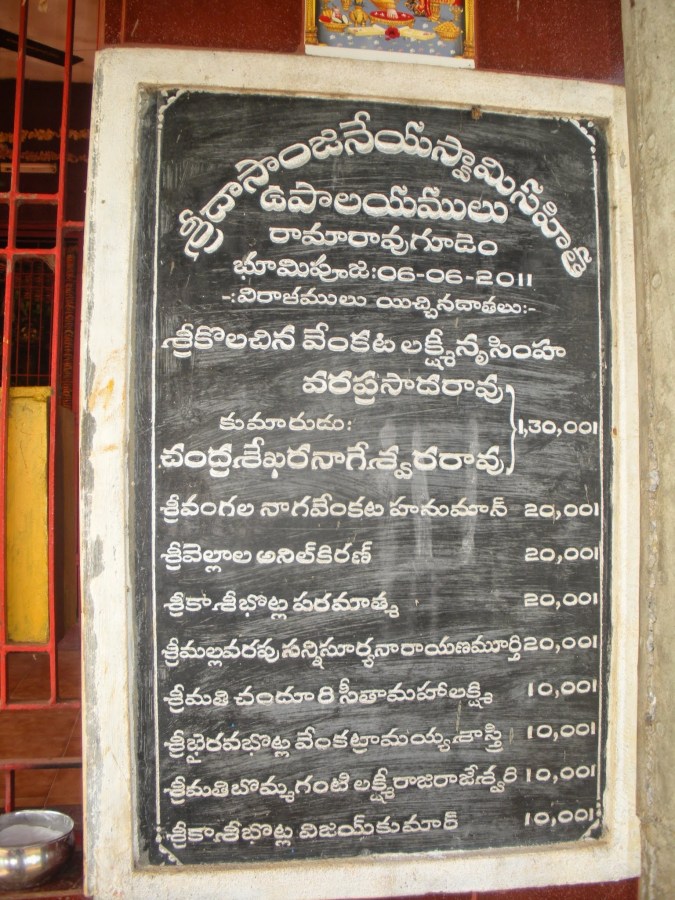 శ్రీదాసాంజనేయస్వామిసహిత
ఉపాలయములు
రామారావుగూడెం
భూమిపూజ:06-06-2011
-:విరాళములు యిచ్చినదాతలు:-
శ్రీకొలచిన వేంకట లక్ష్మీనృసింహ
వరప్రసాదరావు
కుమారుడు:
1,30,001
చంద్రశేఖరనాగేశ్వరరావు
శ్రీవంగల నాగవేంకట హనుమాన్ 20,001
శ్రీవెల్లాల అనిల్‌కిరణ్ 20,001
శ్రీకాశీభొట్ల పరమాత్మ 20,001
శ్రీమల్లవరపు సన్నిసూర్యనారాయణమూర్తి 20,001
శ్రీమతి చందూరి సీతామహాలక్ష్మి 10,001
శ్రీభైరవభొట్ల వేంకట్రామయ్యశాస్త్రి 10,001
శ్రీమతి బొమ్మగంటి లక్ష్మీరాజరాజేశ్వరి 10,001
శ్రీకాశీభొట్ల విజయ్‌కుమార్ 10,001